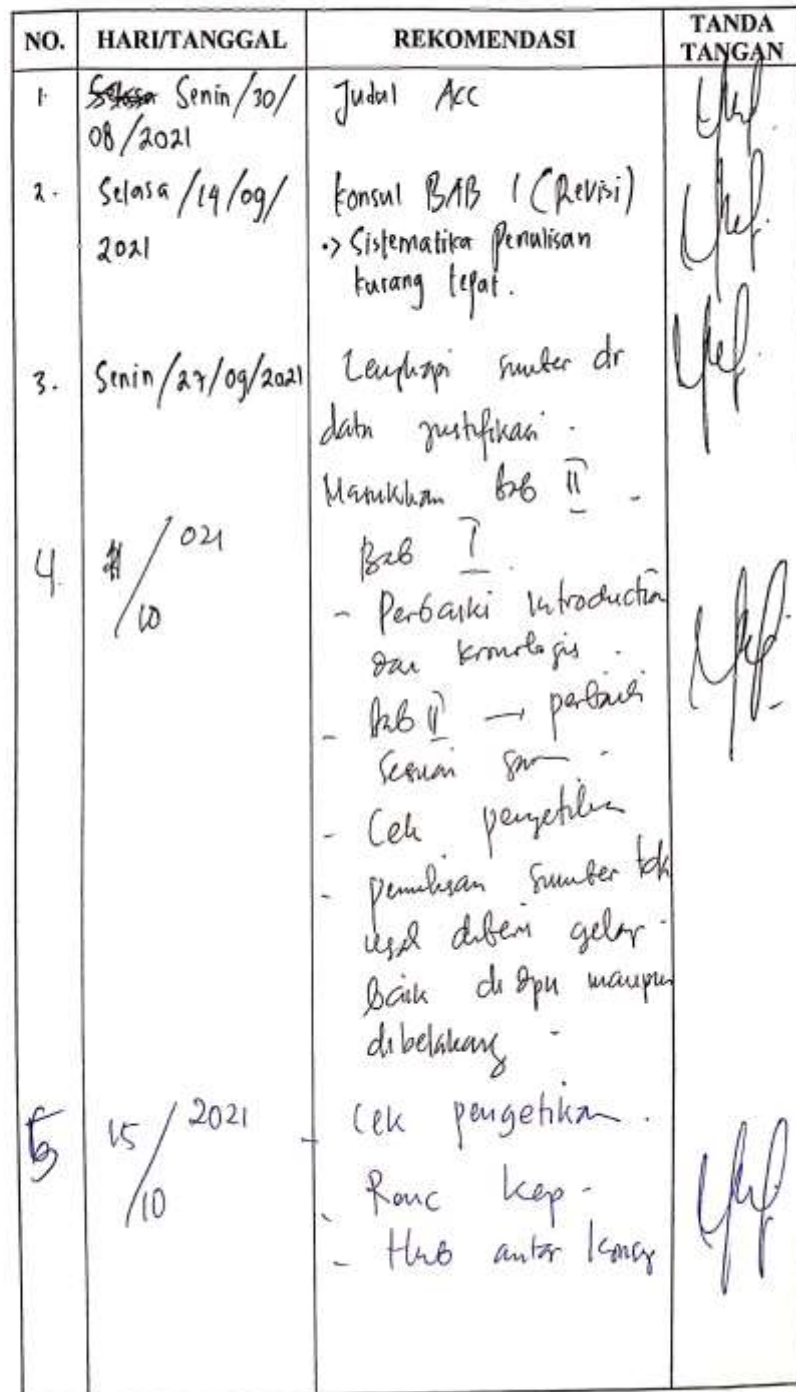 NO. HARI/TANGGAL REKOMENDASI TANDA TANGAN
1. Senin/30/ Judul Acc
08/2021
2. Selasa/14/09/ Konsul BAB 1 (Revisi)
2021 •> Sistematika Penulisan
kurang tepat.
3. Senin/27/09/2021 Lengkapi sumber dr
data justifikasi.
Masukkan bab II
4. /10 021 Bab I
- Perbaiki Introduction
dan kronologis.
- Bab II → perbaiki
sesuai
- Cek pengetikan
- penulisan sumber tdk
usah diberi gelar
baik di dpn maupun
dibelakang
5 15/10 2021 - Cek pengetikan.
- Ranc kep -
- Hub antar konsep